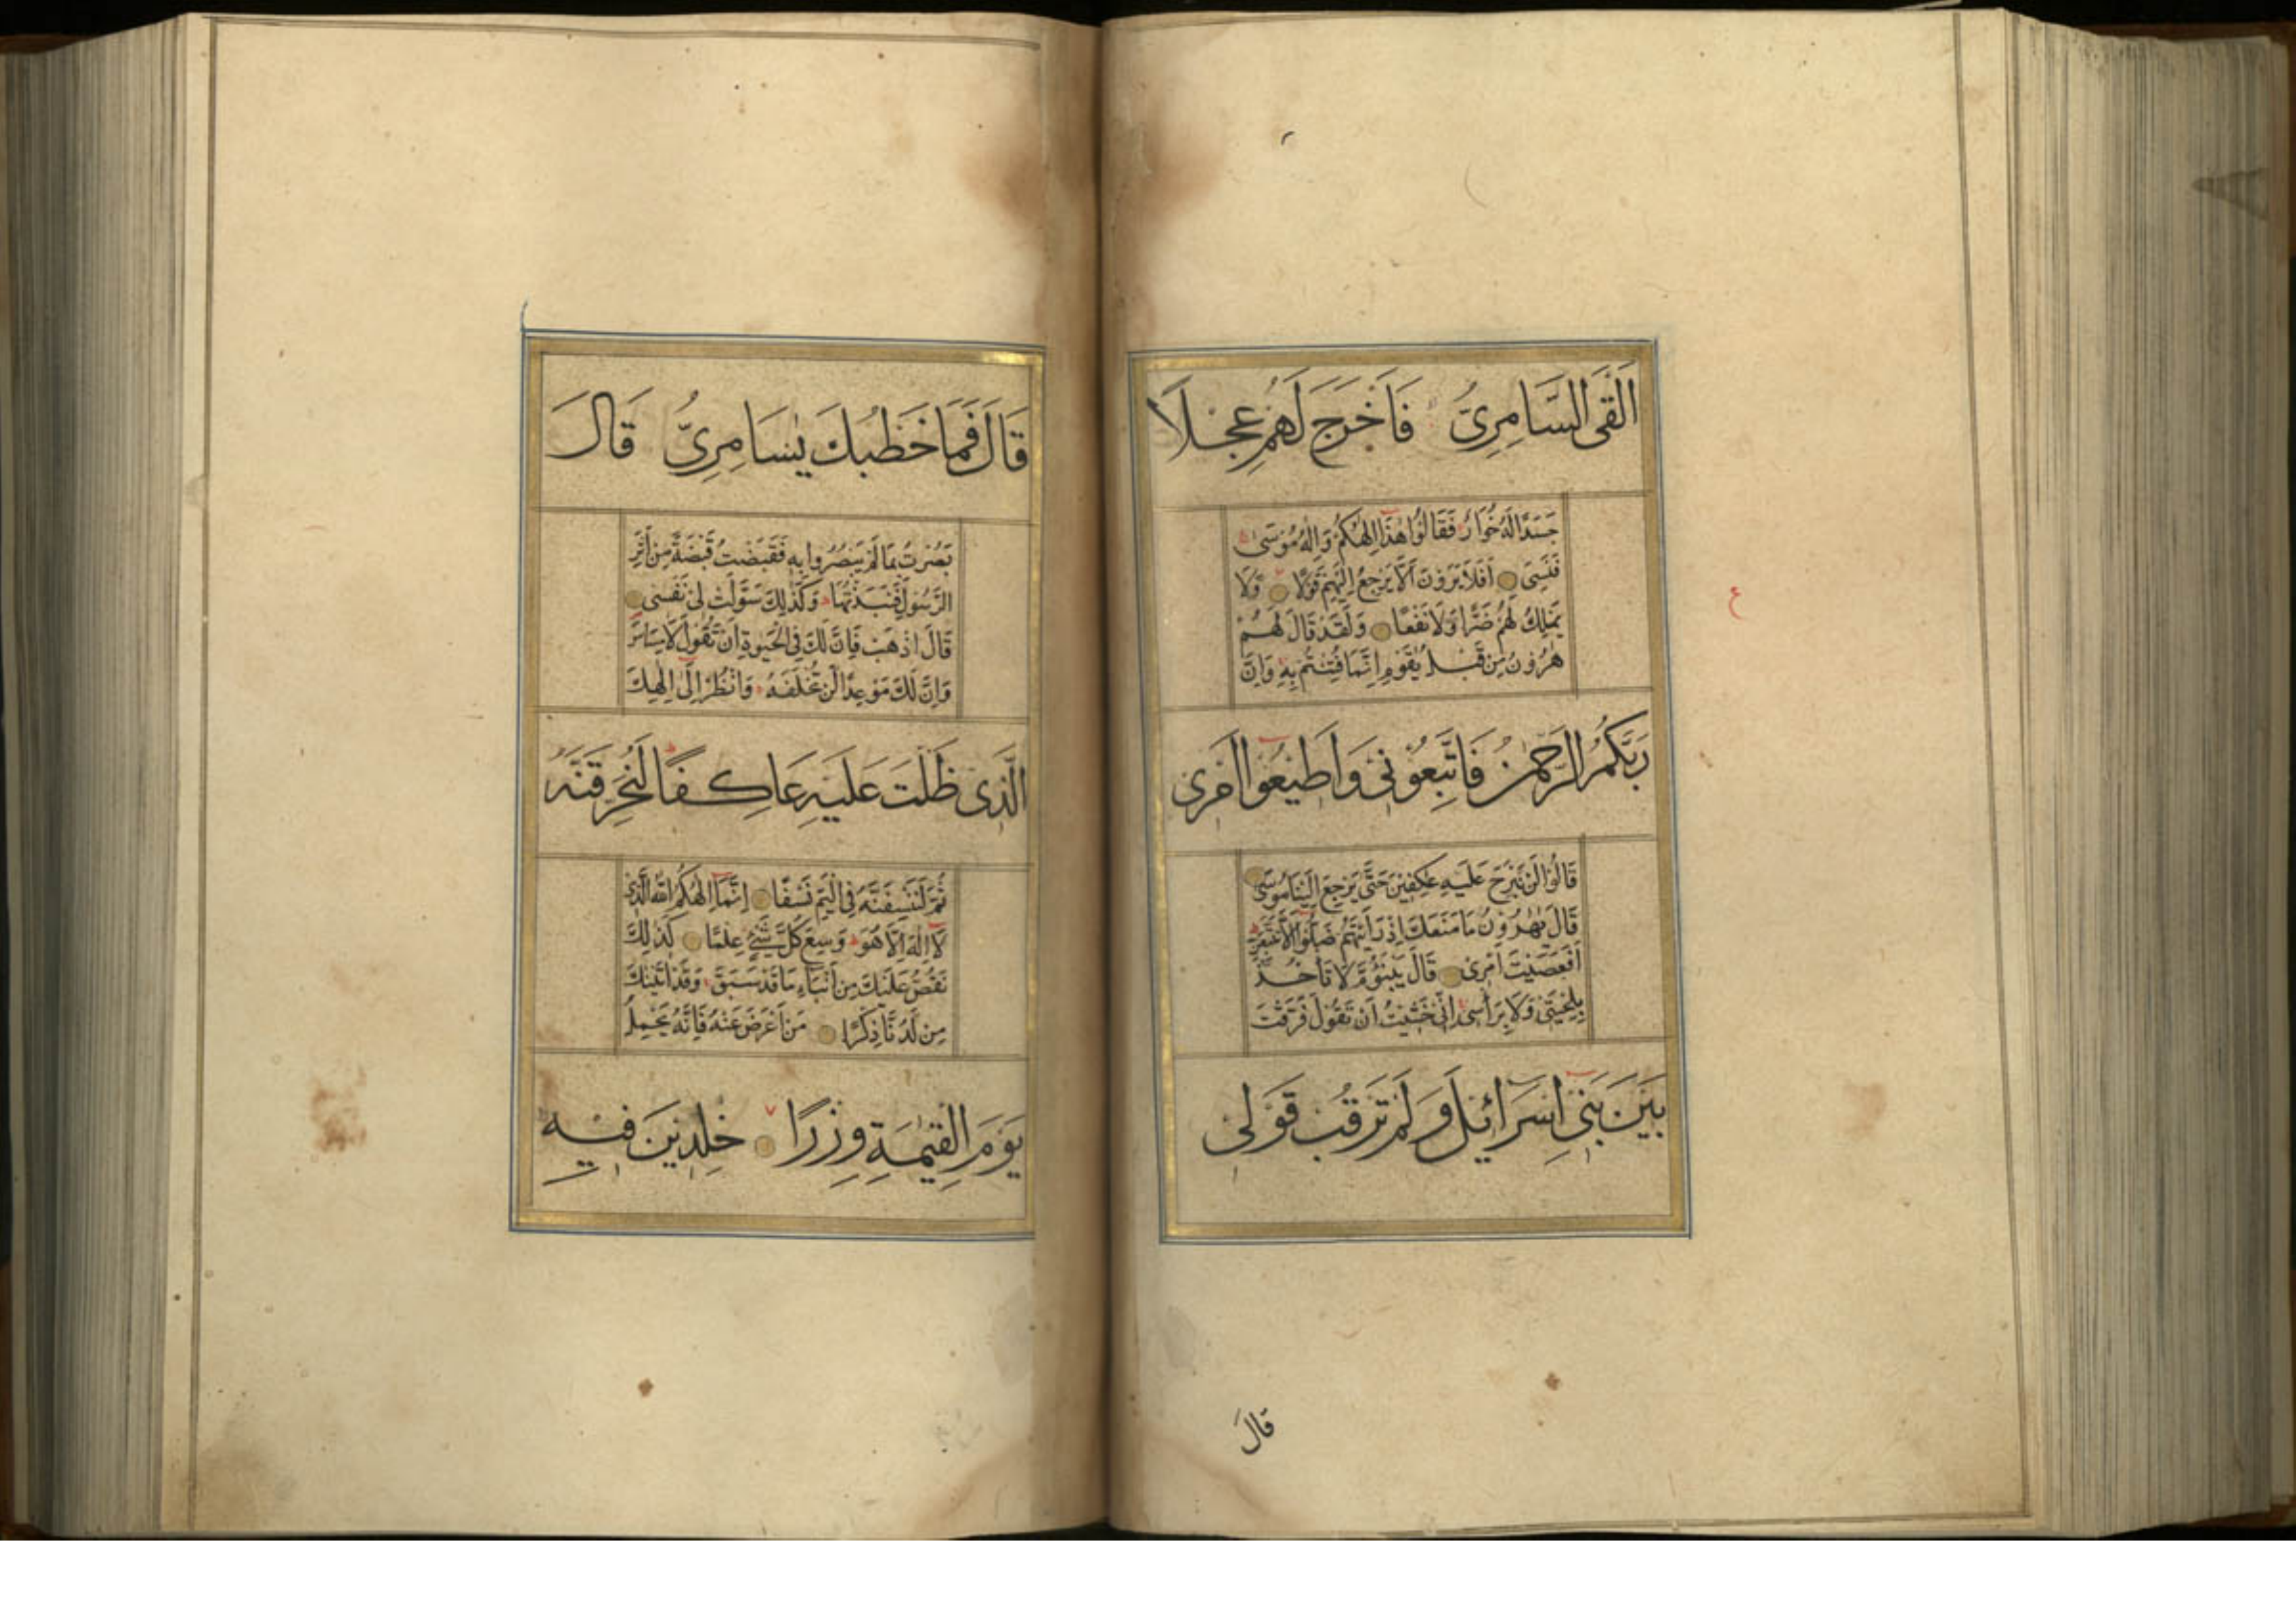 اَلْقَى السَّامِرِىُّ فَاَخْرَجَ لَهُمْ عِجْلًا
جَسَدًا لَهُ خُوَارٌ فَقَالُوا هٰذَا اِلٰهُكُمْ وَاِلٰهُ مُوسٰى
فَنَسِىَ اَفَلَا يَرَوْنَ اَلَّا يَرْجِعُ اِلَيْهِمْ قَوْلًا وَلَا
يَمْلِكُ لَهُمْ ضَرًّا وَلَا نَفْعًا وَلَقَدْ قَالَ لَهُمْ
هٰرُونُ مِنْ قَبْلُ يٰقَوْمِ اِنَّمَا فُتِنْتُمْ بِهِ وَاِنَّ
رَبَّكُمُ الرَّحْمٰنُ فَاتَّبِعُونِى وَاَطِيعُوا اَمْرِى
قَالُوا لَنْ نَبْرَحَ عَلَيْهِ عٰكِفِينَ حَتّٰى يَرْجِعَ اِلَيْنَا مُوسٰى
قَالَ يٰهٰرُونُ مَا مَنَعَكَ اِذْ رَاَيْتَهُمْ ضَلُّوا اَلَّا تَتَّبِعَنِ
اَفَعَصَيْتَ اَمْرِى قَالَ يَبْنَؤُمَّ لَا تَأْخُذْ
بِلِحْيَتِى وَلَا بِرَأْسِى اِنِّى خَشِيتُ اَنْ تَقُولَ فَرَّقْتَ
بَيْنَ بَنِى اِسْرَائِيلَ وَلَمْ تَرْقُبْ قَوْلِى
قَالَ
قَالَ فَمَا خَطْبُكَ يٰسَامِرِىُّ قَالَ
بَصُرْتُ بِمَا لَمْ يَبْصُرُوا بِهِ فَقَبَضْتُ قَبْضَةً مِنْ اَثَرِ
الرَّسُولِ فَنَبَذْتُهَا وَكَذٰلِكَ سَوَّلَتْ لِى نَفْسِى
قَالَ اذْهَبْ فَاِنَّ لَكَ فِى الْحَيٰوةِ اَنْ تَقُولَ لَا مِسَاسَ
وَاِنَّ لَكَ مَوْعِدًا لَنْ تُخْلَفَهُ وَانْظُرْ اِلٰى اِلٰهِكَ
الَّذِى ظَلْتَ عَلَيْهِ عَاكِفًا لَنُحَرِّقَنَّهُ
ثُمَّ لَنَنْسِفَنَّهُ فِى الْيَمِّ نَسْفًا اِنَّمَا اِلٰهُكُمُ اللّٰهُ الَّذِى
لَا اِلٰهَ اِلَّا هُوَ وَسِعَ كُلَّ شَىْءٍ عِلْمًا كَذٰلِكَ
نَقُصُّ عَلَيْكَ مِنْ اَنْبَاءِ مَا قَدْ سَبَقَ وَقَدْ اٰتَيْنٰكَ
مِنْ لَدُنَّا ذِكْرًا مَنْ اَعْرَضَ عَنْهُ فَاِنَّهُ يَحْمِلُ
يَوْمَ الْقِيٰمَةِ وِزْرًا خٰلِدِينَ فِيهِ